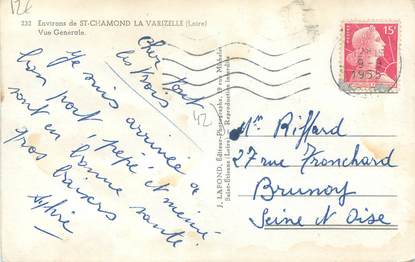 12€
232 Environs de ST-CHAMOND LA VARIZELLE (Loire)
Vue Générale.
cher tout
les trois
Je suis arrivée à
bon port, pépé et mémé
sont en bonne santé
gros baisers
Sylvie
42
J. LAFOND, Editeur-Photographe, 19 rue Michelet
Saint-Etienne (Loire) Reproduction Interdite
15F
1955
Mr Riffard
27 rue Tronchard
Brunoy
Seine et Oise